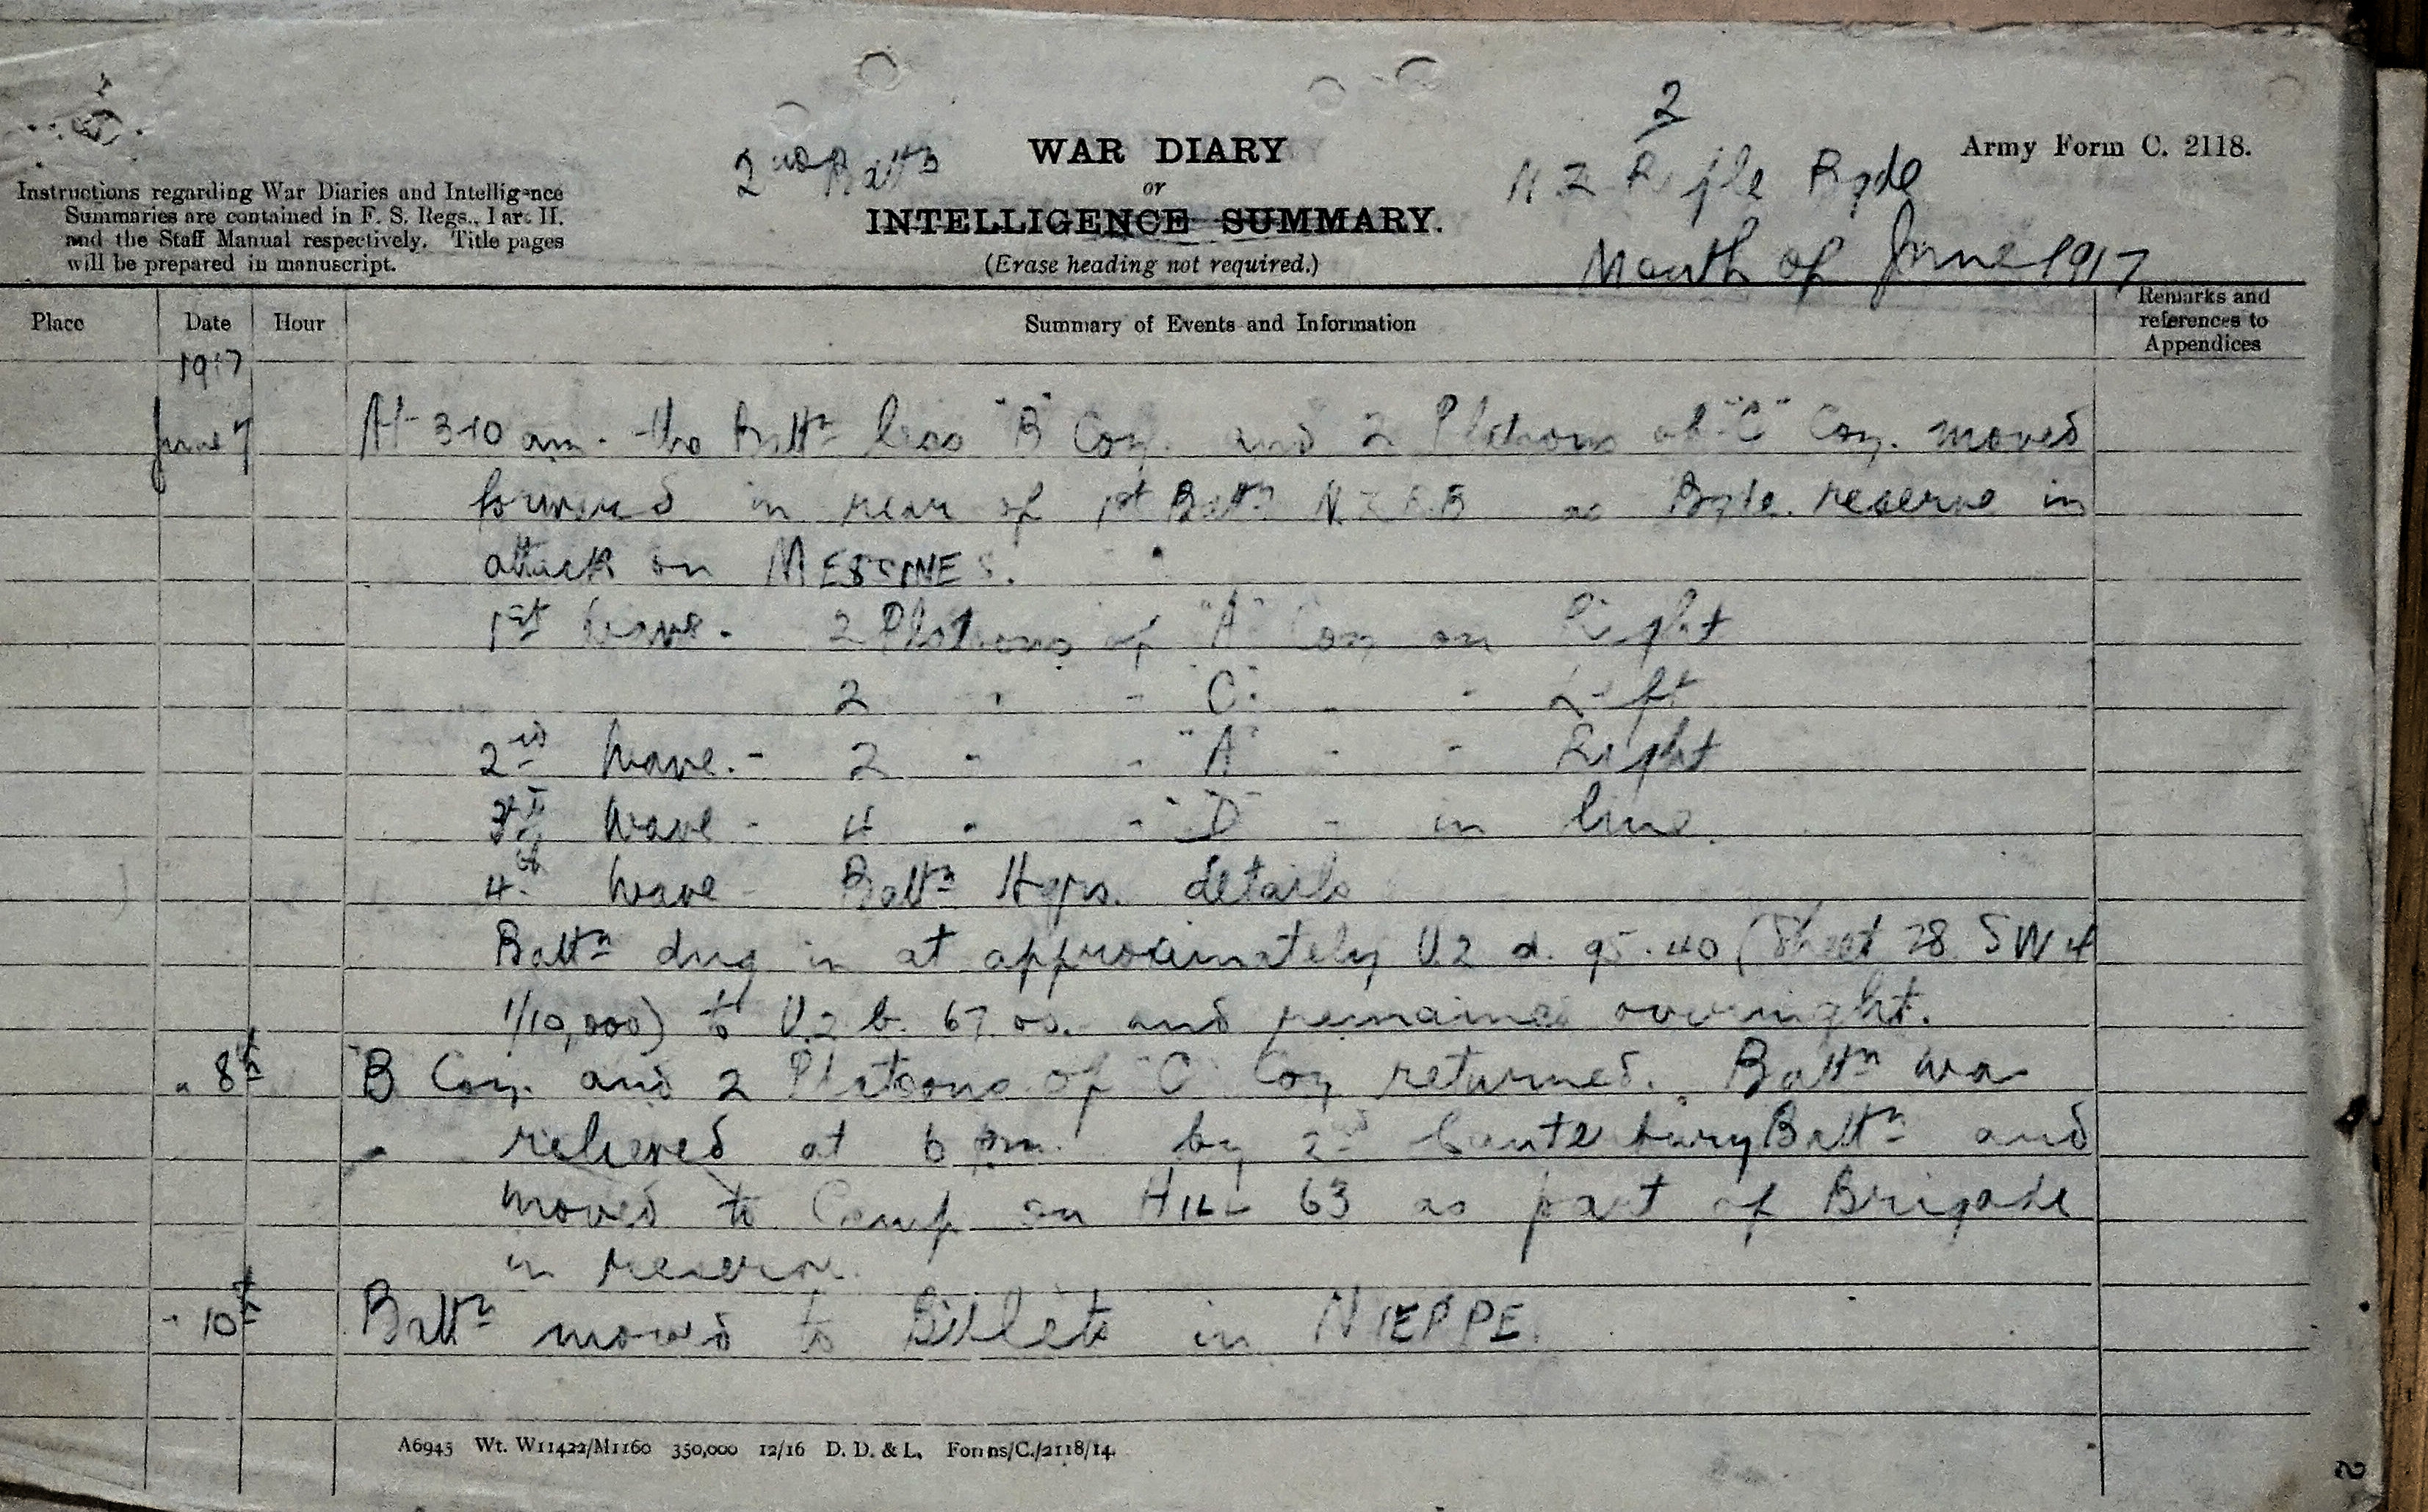 2
2nd Battn
WAR DIARY
or
INTELLIGENCE SUMMARY.
(Erase heading not required.)
N Z Rifle Bgde
Month of June 1917
Army Form C. 2118.
Instructions regarding War Diaries and Intelligence
Summaries are contained in F. S. Regs., Part II.
and the Staff Manual respectively. Title pages
will be prepared in manuscript.
Place Date Hour Summary of Events and Information Remarks and references to Appendices
1917
June 7 At 3-10 am. the Battn less "B" Coy. and 2 Platoons of "C" Coy. moved
forward in rear of 1st Battn N.Z.R.B as Bgde. reserve in
attack on MESSINES.
1st wave - 2 Platoons of "A" Coy on Right
2 " " "C" " " Left
2nd wave - 2 " " "A" " " Right
3rd wave - 4 " " "D" " in line.
4th wave - Battn Hqrs. details
Battn dug in at approximately U.2 d. 95.40 (Sheet 28 SW 4
1/10,000) to U.2 b. 67.00. and remained overnight.
" 8th "B Coy. and 2 Platoons of "C" Coy returned. Battn was
relieved at 6 pm. by 2nd Canterbury Battn and
moved to Camp on HILL 63 as part of Brigade
in reserve.
" 10th Battn moved to Billets in NIEPPE.
A6945 Wt. W11422/M1160 350,000 12/16 D. D. & L. Forms/C./2118/14.
2